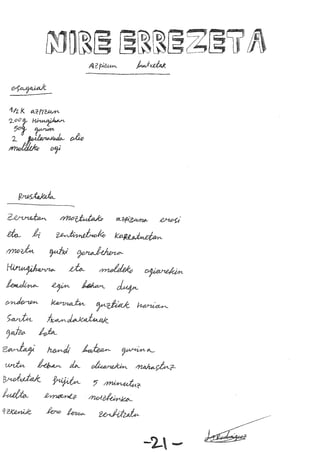 NIRE ERREZETA
Azpizun brotxetak
osagaiak
1/2 K azpizun
200g Hirugihar
50g gurin
2 koilarakada olio
moldeko ogi
Prestaketa
Zerretan moztutako azpizuna erosi
eta bi zentimetroko karratuetan
moztu gutxi gorabehera
Hirugiharra eta moldeko ogiarekin
berdina egin behar dugu
ondoren karratu guztiak harian
Sartu txandakatuak
gatza bota
Zartagi handi batean gurina
urtu behar da olioarekin nahastuz
Brotxetak frijitu 5 minutuz
buelta emanez noizbeinka
Azkenik bero beroa zerbitzatu
-21-